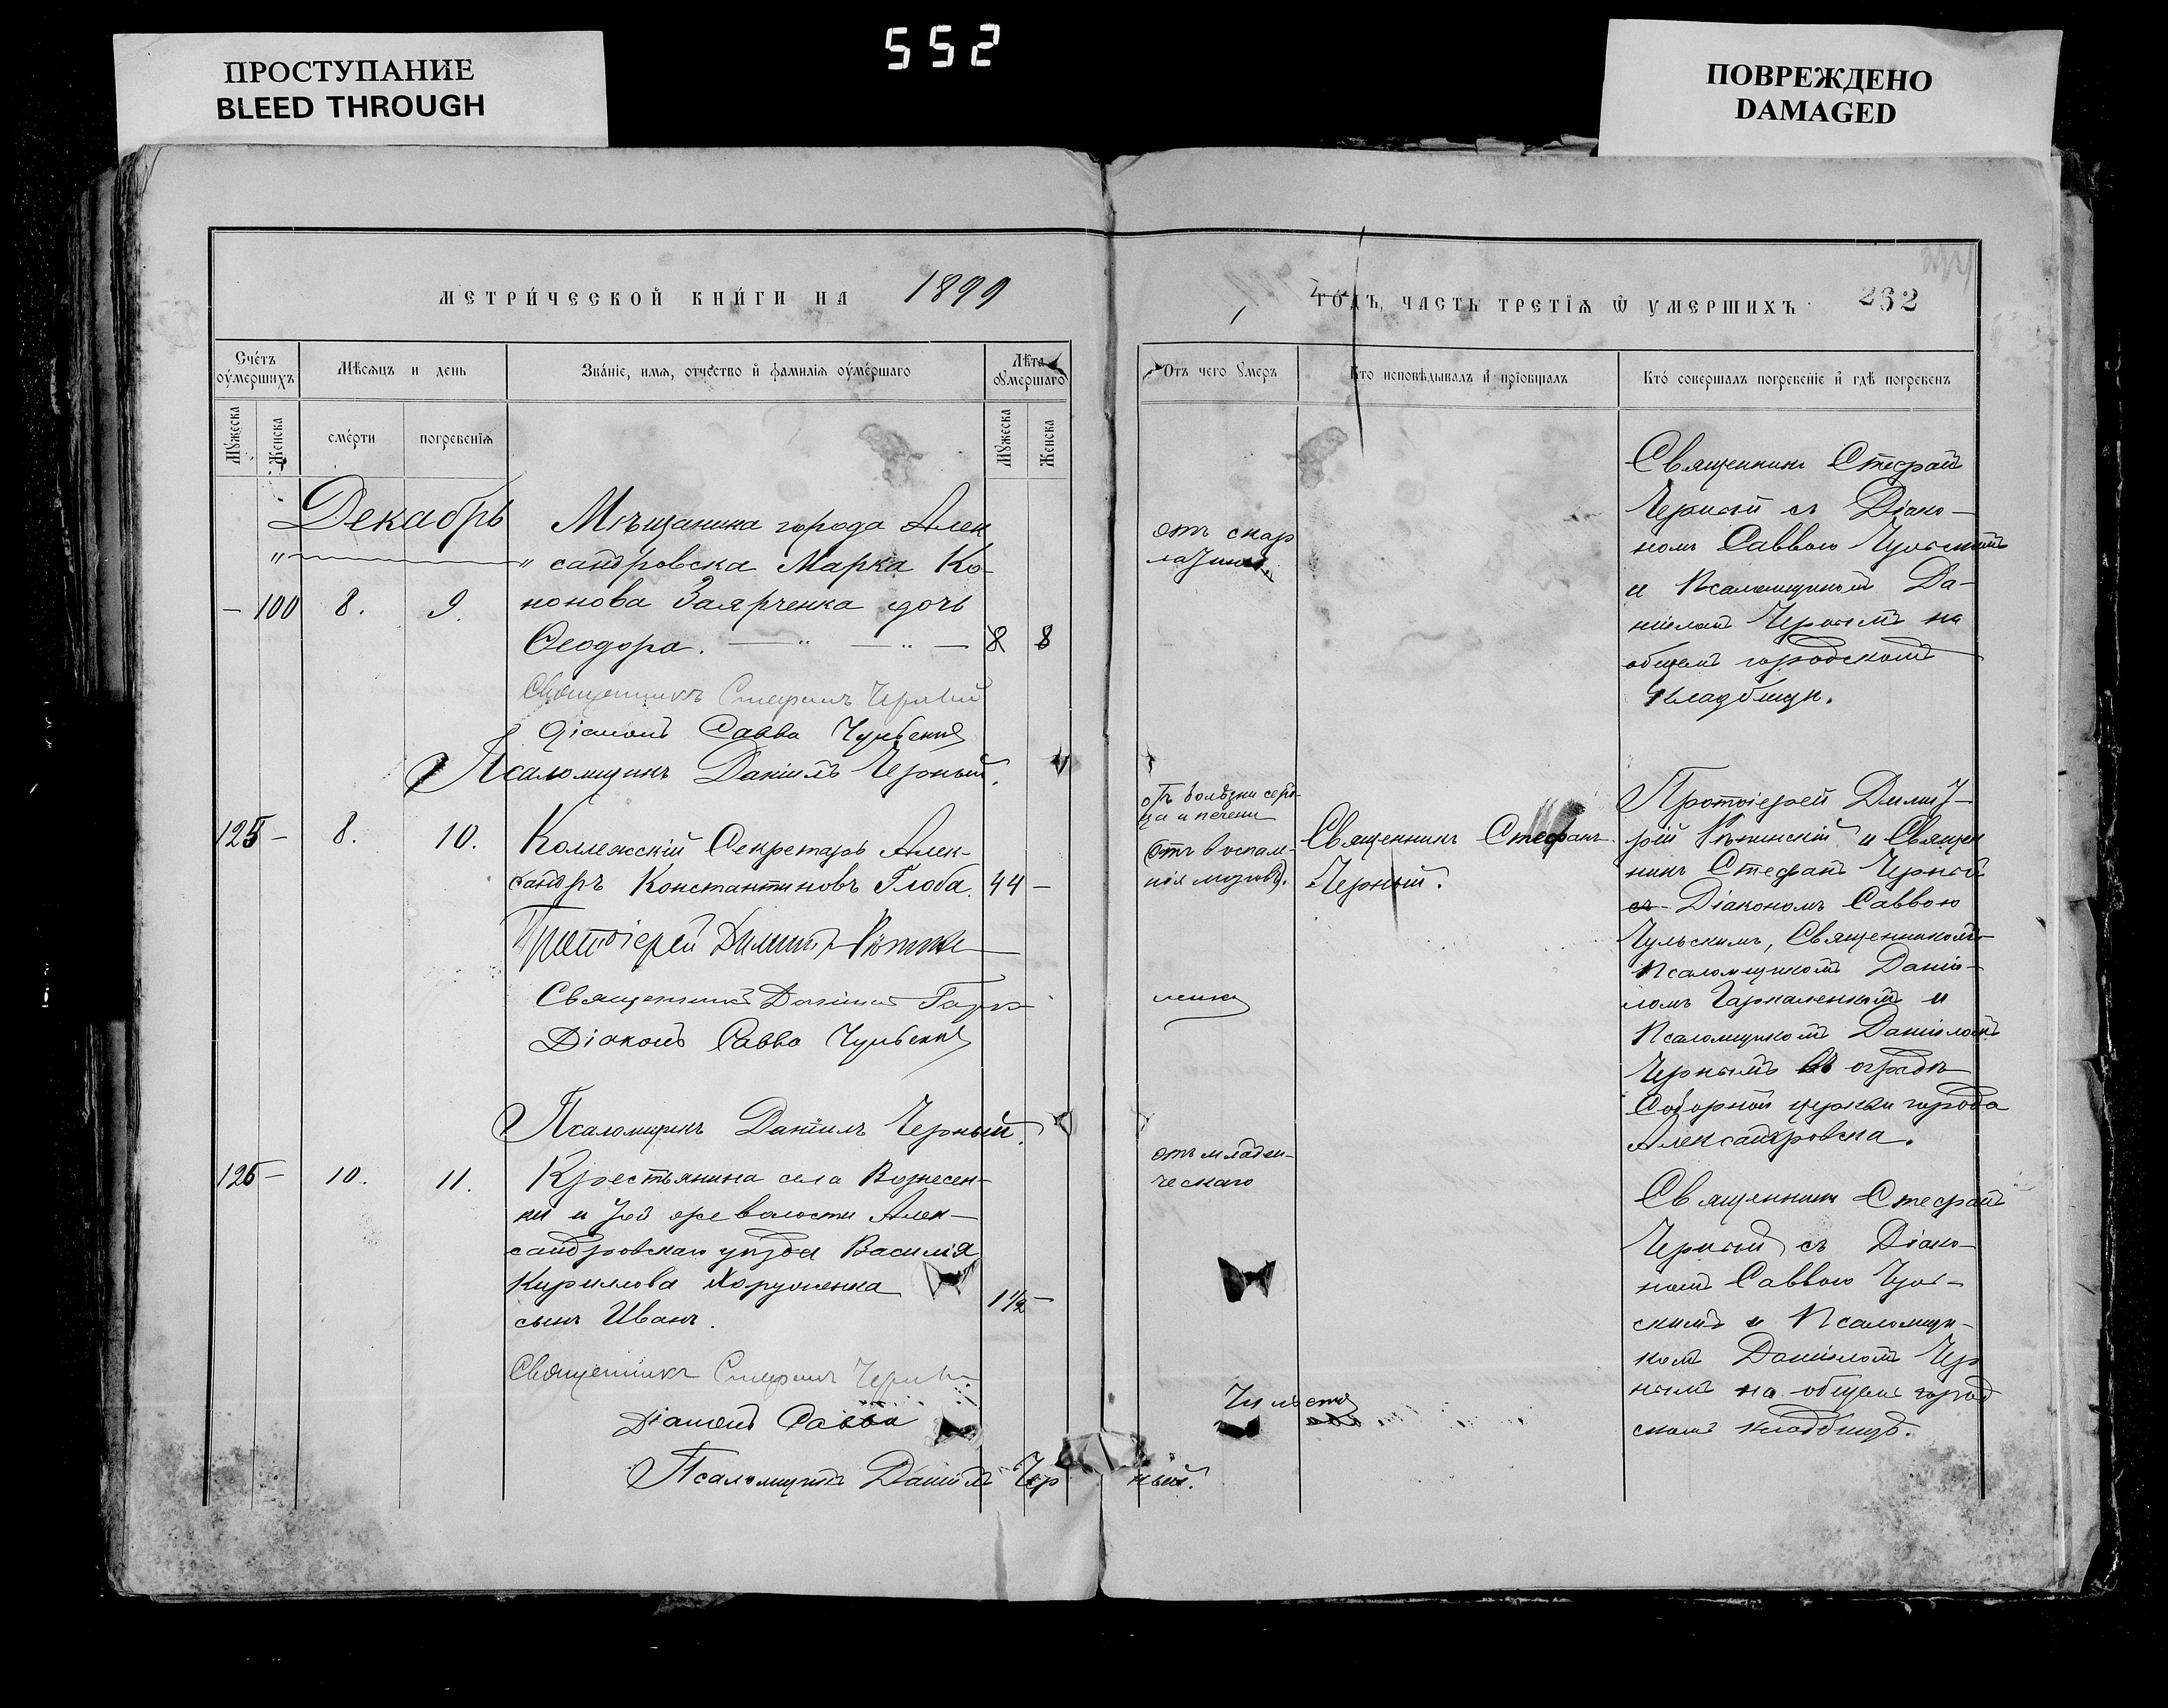 ПРОСТУПАНИЕ
BLEED THROUGH
552
ПОВРЕЖДЕНО
DAMAGED
МЕТРИ́ЧЕСКОЙ КНИ́ГИ НА 1899
ГО́ДЪ, ЧАСТЬ ТРЕТІѦ Ѿ УМЕРШИХЪ 232
Сче́тъ оу́мершихъ
Мѣсѧцъ и день
Зва́ніе, имѧ, отчество и҆ фамилія оуме́ршаго
Лѣта оумершаго
Мꙋжеска
Женска
сме́рти
погребенїѧ
Мꙋжеска
Женска
Отъ чего ꙋмеръ
Кто исповѣдывалъ и҆ прїобщалъ
Кто́ совершалъ погребенїе и҆ гдѣ погребенъ
Декабрь
Мѣщанина города Алек
сандровска Марка Ко-
- 100 8. 9. нонова Заярченка дочь
Ѳеодора. 8 8
Священникъ Стефанъ Черный
Діаконъ Савва Чульскій
Псаломщикъ Даніилъ Черный.
отъ скар
латины
Священникъ Стефанъ
Черный съ Діако-
номъ Саввою Чульскимъ
и Псаломщикомъ Да-
ніиломъ Чернымъ на
общемъ городскомъ
кладбищѣ.
125 - 8. 10. Коллежскій Секретарь Алек-
сандръ Константиновъ Глоба. 44 -
Протоіерей Димитр
Священникъ Даніилъ Гарка
Діаконъ Савва Чульскій
Псаломщикъ Даніилъ Черный.
отъ болѣзни серд-
ца и печени
Отъ воспале-
нія мозговъ.
ленко
Священникъ Стефанъ
Черный.
Протоіерей Димит-
рій и Священ
никъ Стефанъ Черный
съ Діакономъ Саввою
Чульскимъ, Священникомъ
Псаломщикомъ Даніи-
ломъ Гаркаленкомъ и
Псаломщикомъ Даніиломъ
Чернымъ въ оградѣ
Соборной церкви города
Александровска.
126 - 10. 11. Крестьянина села Вознесен-
ки и той же волости Алек-
сандровскаго уѣзда Василія
Кириллова Хорунженка
сынъ Иванъ. 1½ -
Священникъ Стефанъ Черный
Діаконъ Савва Чульскій
Псаломщикъ Даніилъ Черный.
отъ младен-
ческаго
Священникъ Стефанъ
Черный съ Діако-
номъ Саввою Чуль-
скимъ и Псаломщи-
комъ Даніиломъ Чер
нымъ на общемъ город
скомъ кладбищѣ.